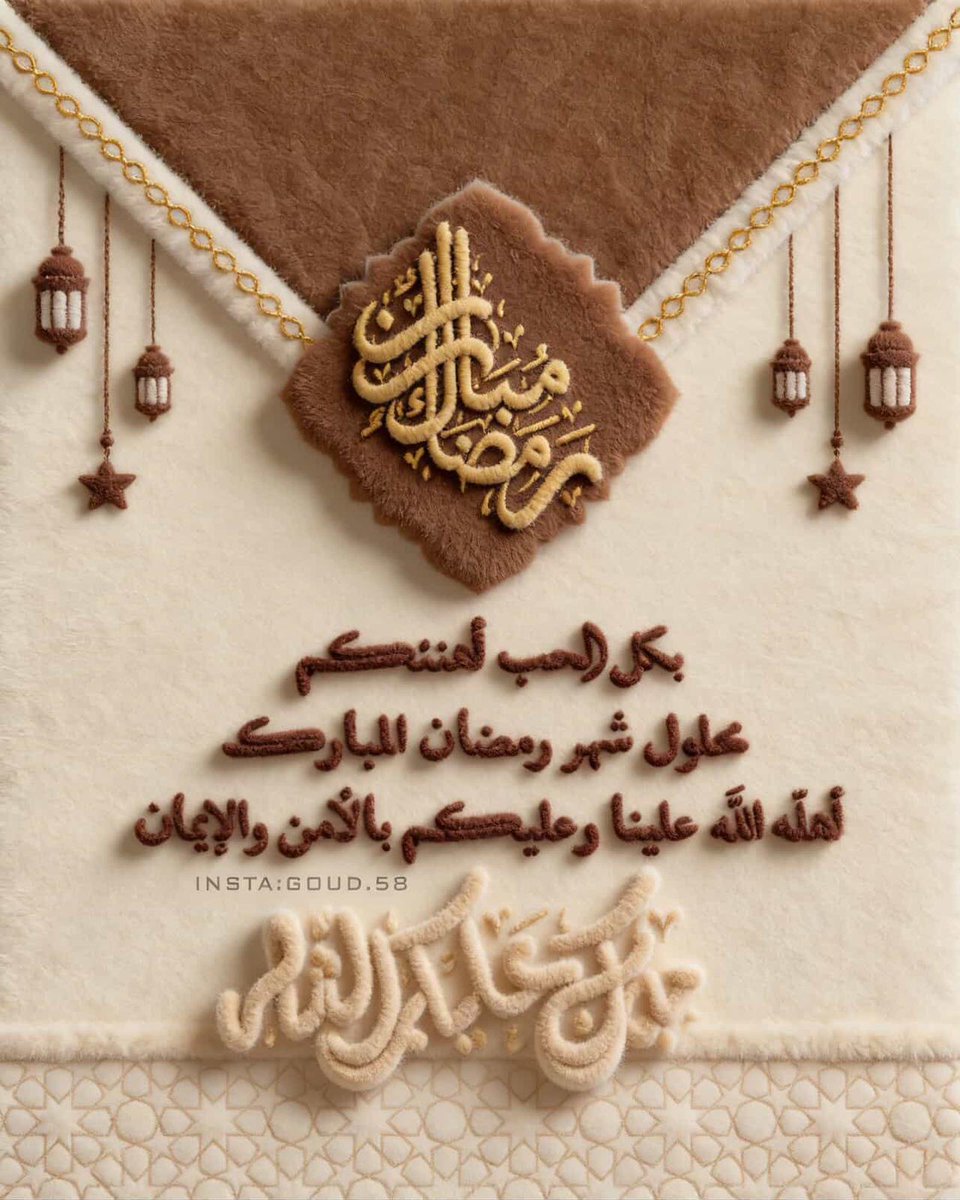 رمضان مبارك
بكل الحب أهنئكم
بحلول شهر رمضان المبارك
أهلّه اللَّه علينا وعليكم بالأمن والإيمان
INSTA:GOUD.58